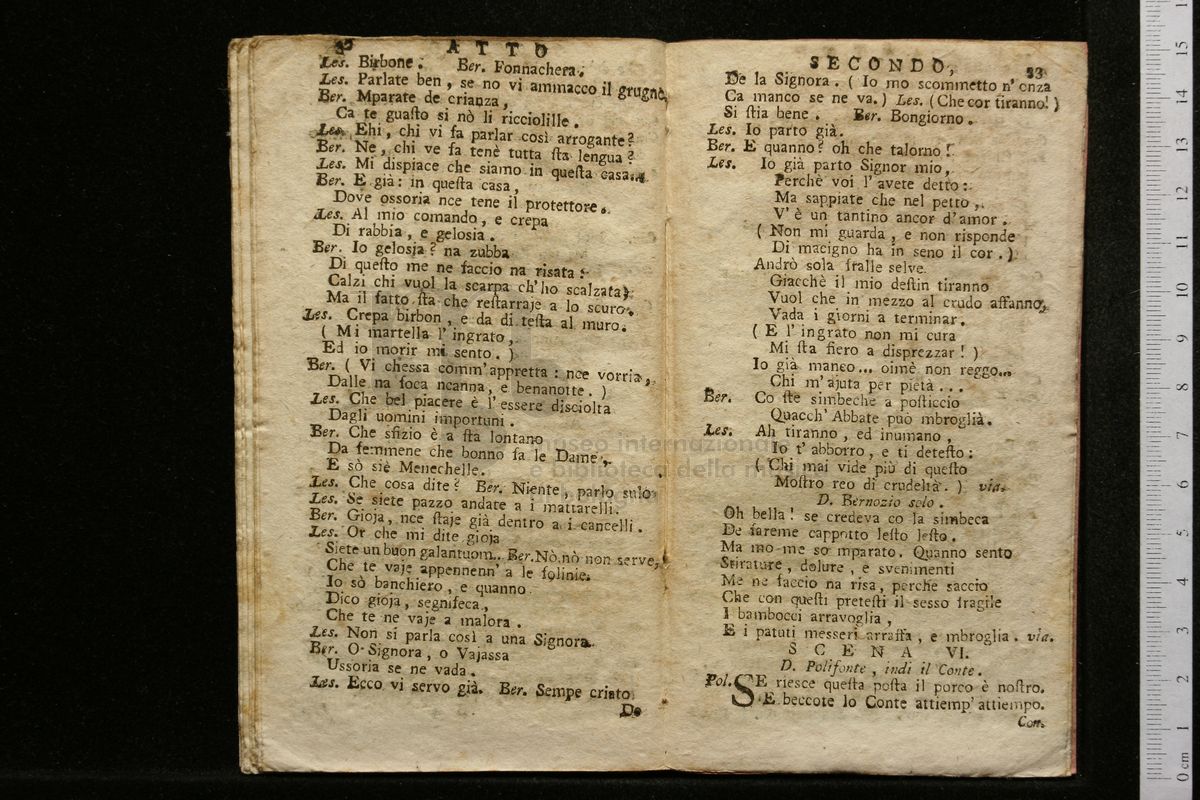 ATTO
Les. Birbone. Ber. Fonnachera.
Les. Parlate ben, se no vi ammacco il grugno.
Ber. Mparate de crianza,
Ca te guaſto si nò li ricciolille.
Les. Ehi, chi vi fa parlar così arrogante?
Ber. Ne, chi ve fa tenè tutta ſta lengua?
Les. Mi dispiace che siamo in queſta casa...
Ber. E già: in queſta casa,
Dove ossoria nce tene il protettore.
Les. Al mio comando, e crepa
Di rabbia, e gelosia.
Ber. Io gelosia? na zubba
Di queſto me ne faccio na risata:
Calzi chi vuol la scarpa ch'ho scalzata;
Ma il fatto ſta che reſtarraje a lo scuro.
Les. Crepa birbon, e da di teſta al muro.
( Mi martella l'ingrato,
Ed io morir mi sento. )
Ber. ( Vi chessa comm'appretta: nce vorria,
Dalle na foca ncanna, e benanotte. )
Les. Che bel piacere è l'essere disciolta
Dagli uomini importuni.
Ber. Che sfizio è a ſta lontano
Da femmene che bonno fa le Dame,
E sò siè Menechelle.
Les. Che cosa dite? Ber. Niente, parlo sulo.
Les. Se siete pazzo andate a i mattarelli.
Ber. Gioja, nce ſtaje già dentro a i cancelli.
Les. Or che mi dite gioja
Siete un buon galantuom.. Ber. Nò, nò non serve,
Che te vaje appennenn' a le felinie.
Io sò banchiero, e quanno
Dico gioja, segnifeca,
Che te ne vaje a malora.
Les. Non si parla così a una Signora.
Ber. O Signora, o Vajassa
Ussoria se ne vada.
Les. Ecco vi servo già. Ber. Sempe criato
De
SECONDO, 33
De la Signora. ( Io mo scommetto n'onza
Ca manco se ne va. ) Les. ( Che cor tiranno! )
Si ſtia bene. Ber. Bongiorno.
Les. Io parto già.
Ber. E quanno? oh che talorno!
Les. Io già parto Signor mio,
Perchè voi l'avete detto:
Ma sappiate che nel petto,
V'è un tantino ancor d'amor.
( Non mi guarda, e non risponde
Di macigno ha in seno il cor. )
Andrò sola fralle selve
Giacchè il mio deſtin tiranno
Vuol che in mezzo al crudo affanno,
Vada i giorni a terminar.
( E l'ingrato non mi cura
Mi ſta fiero a disprezzar! )
Io già manco... oimè non reggo...
Chi m'ajuta per pietà...
Ber. Co ſte simbeche a poſticcio
Quacch' Abbate può mbroglià.
Les. Ah tiranno, ed inumano,
Io t'abborro, e ti deteſto:
( Chi mai vide più di queſto
Moſtro reo di crudeltà. ) via.
D. Bernozio solo.
Oh bella! se credeva co la simbeca
De fareme cappotto leſto leſto.
Ma mo me so mparato. Quanno sento
Stirature, dolure, e svenimenti
Me ne faccio na risa, perchè saccio
Che con queſti preteſti il sesso fragile
I bambocci arravoglia,
E i patuti messeri arraffa, e mbroglia. via.
SCENA VI.
D. Polifonte, indi il Conte.
Pol. SE riesce queſta poſta il porco è noſtro.
E beccote lo Conte attiemp'attiempo.
Con.
museo internazionale
e biblioteca della musica
0 cm 1 2 3 4 5 6 7 8 9 10 11 12 13 14 15